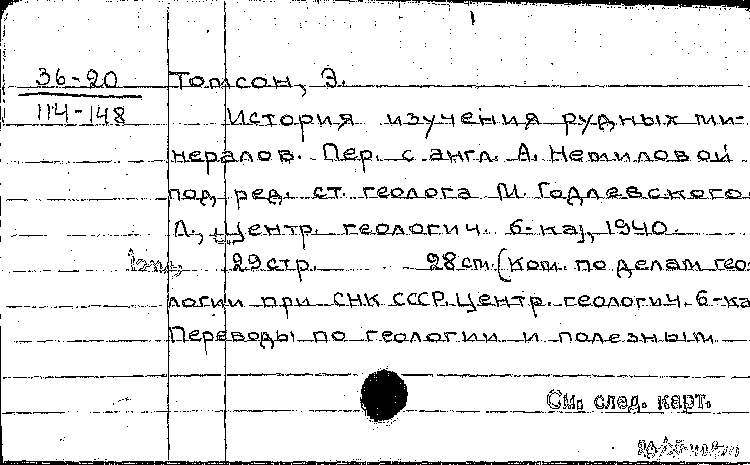 36-20 Томсон, Э.
114-148 История изучения рудных ми-
нералов. Пер. с англ. А. Немиловой
под ред. ст. геолога М. Годлевского
Л., [Центр. геологич. б-ка], 1940.
29 стр. 28 см. (Ком. по делам гео-
логии при СНК СССР. Центр. геологич. б-ка
Переводы по геологии и полезным
См. след. карт.